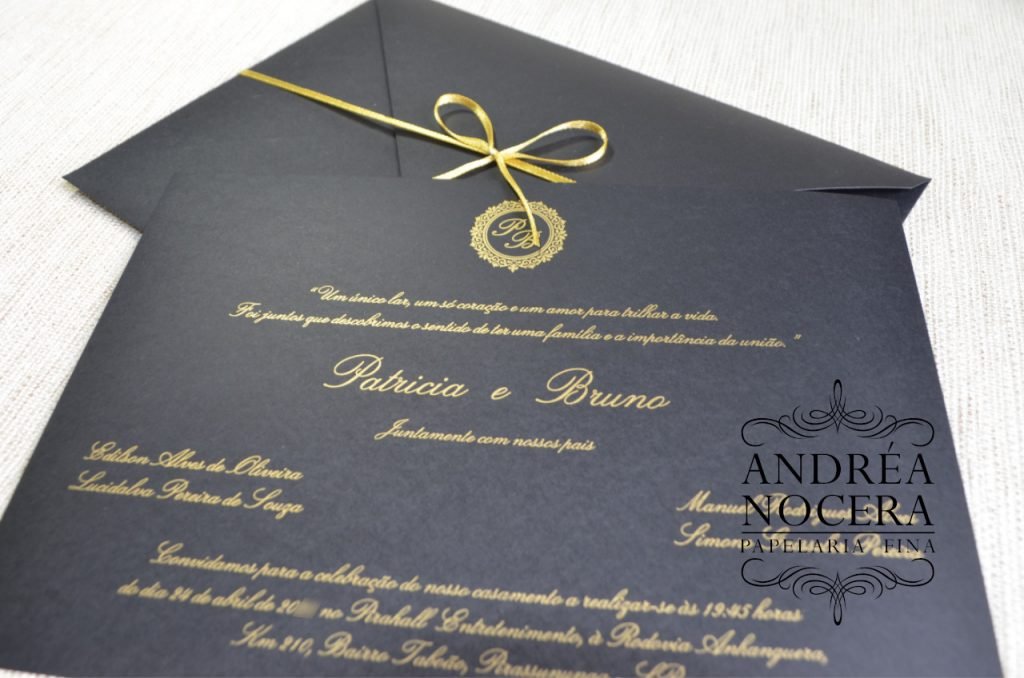 P B
“Um único lar, um só coração e um amor para trilhar a vida.
Foi juntos que descobrimos o sentido de ter uma família e a importância da união.”
Patricia e Bruno
Juntamente com nossos pais
Edilson Alves de Oliveira
Lucidalva Pereira de Souza
Manuel
Simone
ANDRÉA
NOCERA
PAPELARIA FINA
Convidamos para a celebração do nosso casamento a realizar-se às 19:45 horas
do dia 24 de abril de 20 no Pirahall Entretenimento, à Rodovia Anhanguera,
Km 210, Bairro Taboão, Pirassununga SP